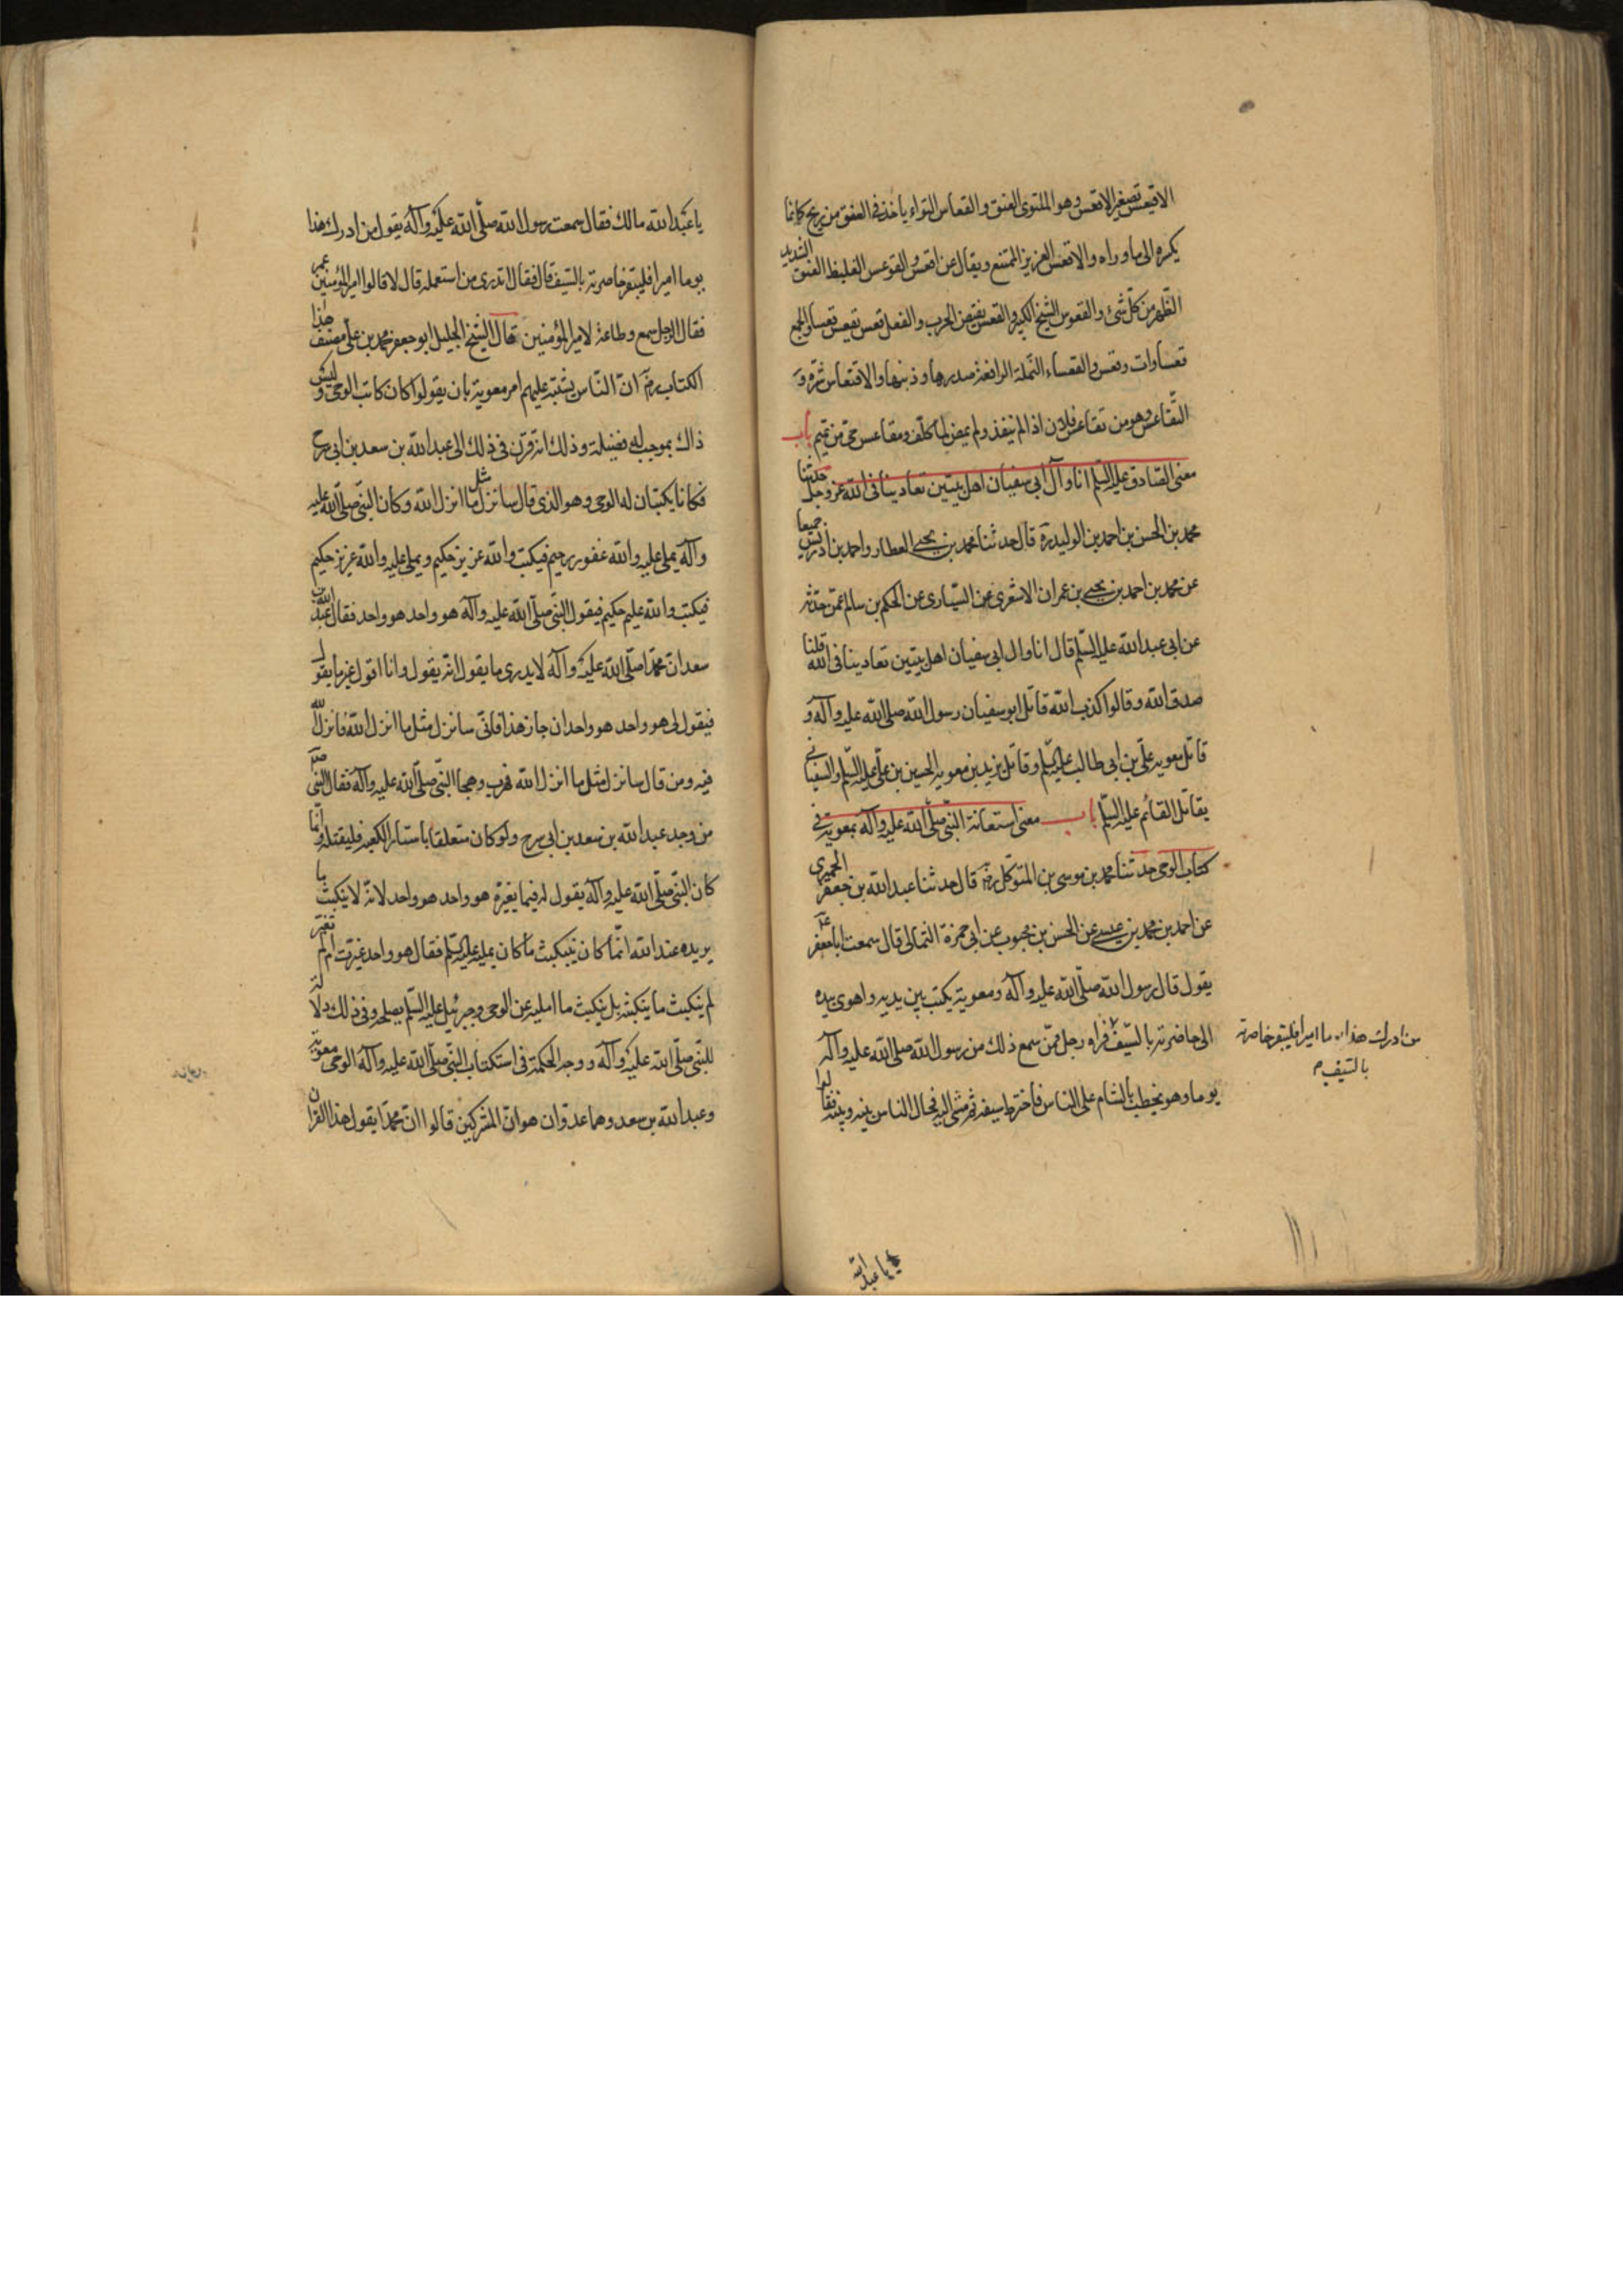 الاقيعس تصغير الاقعس وهو الملتوى العنق والقعاس التواء ياخذ فى العنق من ريح كانما
يكسره الى ما وراه والاقعس العزيز الممتنع ويقال عن اقعس والقوعس الغليظ العنق الشديد
الظهر من كل شئ والقعوس الشيخ الكبير والقعس نقيض الحدب والفعل قعس يقعس قعسا والجمع
قعساوات وقعس والقعساء النملة الرافعة صدرها وذنبها والاقتعاس شره و
التقاعس وهو من تقاعس فلان اذا لم ينفذ ولم يمض لما كلف ومقاعس حى من تميم باب
معنى الصادق عليه السلم انا وآل ابى سفيان اهل بيتين تعادينا فى الله عز وجل حدثنا
محمد بن الحسن بن احمد بن الوليد ره قال حدثنا محمد بن يحيى العطار واحمد بن ادريس جميعا
عن محمد بن احمد بن يحيى بن عمران الاشعرى عن السيارى عن الحكم بن سالم عمن حدثه
عن ابى عبد الله عليه السلم قال انا وال ابى سفيان اهل بيتين تعادينا فى الله قلنا
صدق الله وقالوا كذب الله قاتل ابو سفيان رسول الله صلى الله عليه وآله و
قاتل معويه على بن ابى طالب عليه السلم وقاتل يزيد بن معويه الحسين بن على عليه السلم والسفيانى
يقاتل القائم عليه السلم باب معنى استعانة النبى صلى الله عليه وآله بمعوية فى
كتاب الوحى حدثنا محمد بن موسى بن المتوكل رض قال حدثنا عبد الله بن جعفر الحميرى
عن احمد بن محمد بن عيسى عن الحسن بن محبوب عن ابى حمزة الثمالى قال سمعت ابا جعفر ع
يقول قال رسول الله صلى الله عليه وآله ومعوية يكتب بين يديه واهوى بيده
الى خاصرته بالسيف فراه رجل ممن سمع ذلك من رسول الله صلى الله عليه وآله
يوما وهو يخطب بالشام على الناس فاخترط سيفه ثم مشى اليه فحال الناس بينه وبينه فقالوا
من ادرك هذا يوما اميرا فليبقر خاصرته
بالسيف
يا عبد الله
يا عبد الله مالك فقال سمعت رسول الله صلى الله عليه وآله يقول من ادرك هذا
يوما اميرا فليبقر خاصرته بالسيف قال فقال اتدرى من استعمله قال لا قالوا امير المؤمنين عمر
فقال الرجل سمع وطاعة لامير المؤمنين قال الشيخ الجليل ابو جعفر محمد بن على مصنف هذا
الكتاب رض ان الناس يشتبه عليهم امر معوية بان يقولوا كان كاتب الوحى وليس
ذاك بموجب له فضيلة وذلك انه قرن فى ذلك الى عبد الله بن سعد بن ابى سرح
فكانا يكتبان له الوحى وهو الذى قال سانزل مثل ما انزل الله وكان النبى صلى الله عليه
وآله يملى عليه والله غفور رحيم فيكتب والله عزيز حكيم ويملى عليه والله عزيز حكيم
فيكتب والله عليم حكيم فيقول النبى صلى الله عليه وآله هو واحد هو واحد فقال عبد الله بن
سعد ان محمدا صلى الله عليه وآله لا يدرى ما يقول انه يقول وانا اقول غير ما يقول
فيقول لى هو واحد هو واحد ان جاز هذا فانى سانزل مثل ما انزل الله فانزل الله
فيه ومن قال سانزل مثل ما انزل الله فهرب وهجا النبى صلى الله عليه وآله فقال النبى صلعم
من وجد عبد الله بن سعد بن ابى سرح ولو كان متعلقا باستار الكعبه فليقتله وانما
كان النبى صلى الله عليه وآله يقول له فيما يغيره هو واحد هو واحد لانه لا ينكتب ما
يريده عند الله انما كان ينكتب ما كان يمليه عليه السلم فقال هو واحد غيرت ام لم تغير
لم ينكتب ما يكتبه بل ينكتب ما امليه عن الوحى وجبرئيل عليه السلم يصلحه وفى ذلك دلالة
للنبى صلى الله عليه وآله ووجه الحكمة فى استكتاب النبى صلى الله عليه وآله الوحى معوية
وعبد الله بن سعد وهما عدوان هو ان المشركين قالوا ان محمدا يقول هذا القران